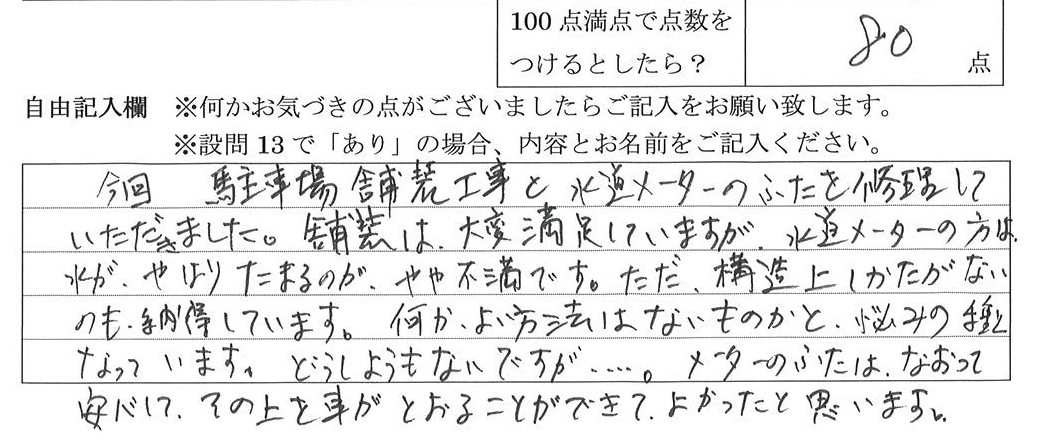 100点満点で点数を
つけるとしたら?
80
点
自由記入欄 ※何かお気づきの点がございましたらご記入をお願い致します。
※設問13で「あり」の場合、内容とお名前をご記入ください。
今回 駐車場舗装工事と水道メーターのふたを修理して
いただきました。舗装は、大変満足していますが、水道メーターの方は、
水が、やはりたまるのが、やや不満です。ただ、構造上しかたがない
のも、納得しています。何か、よい方法はないものかと、悩みの種と
なっています。どうしようもないですが……。メーターのふたは、なおって
安心して、その上を車がとおることができて、よかったと思います。